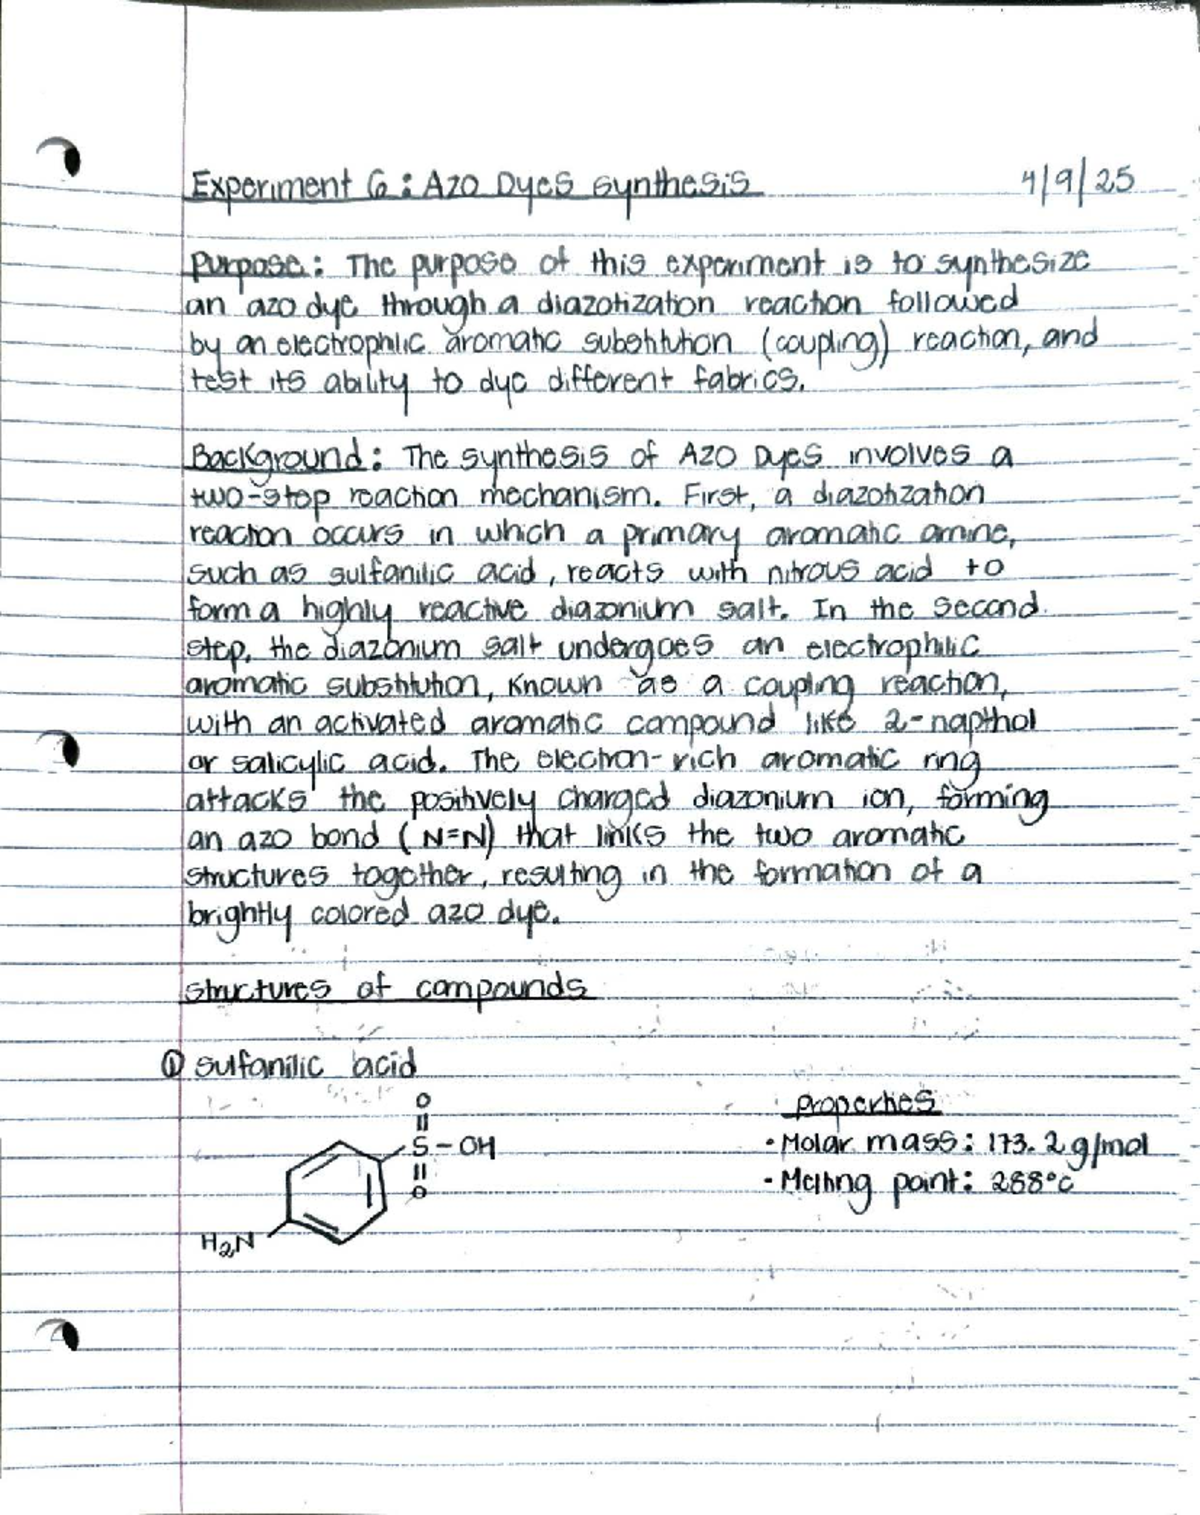 Experiment 6: Azo Dyes synthesis 4/9/25
Purpose: The purpose of this experiment is to synthesize
an azo dye through a diazotization reaction followed
by an electrophilic aromatic substitution (coupling) reaction, and
test its ability to dye different fabrics.
Background: The synthesis of Azo Dyes involves a
two-step reaction mechanism. First, a diazotization
reaction occurs in which a primary aromatic amine,
such as sulfanilic acid, reacts with nitrous acid to
form a highly reactive diazonium salt. In the second
step, the diazonium salt undergoes an electrophilic
aromatic substitution, known as a coupling reaction,
with an activated aromatic compound like 2-napthol
or salicylic acid. The electron-rich aromatic ring
attacks the positively charged diazonium ion, forming
an azo bond (N=N) that links the two aromatic
structures together, resulting in the formation of a
brightly colored azo dye.
structures of compounds
① sulfanilic acid
O
S-OH
O
H₂N
properties
• Molar mass: 173.2 g/mol
- Melting point: 288°C